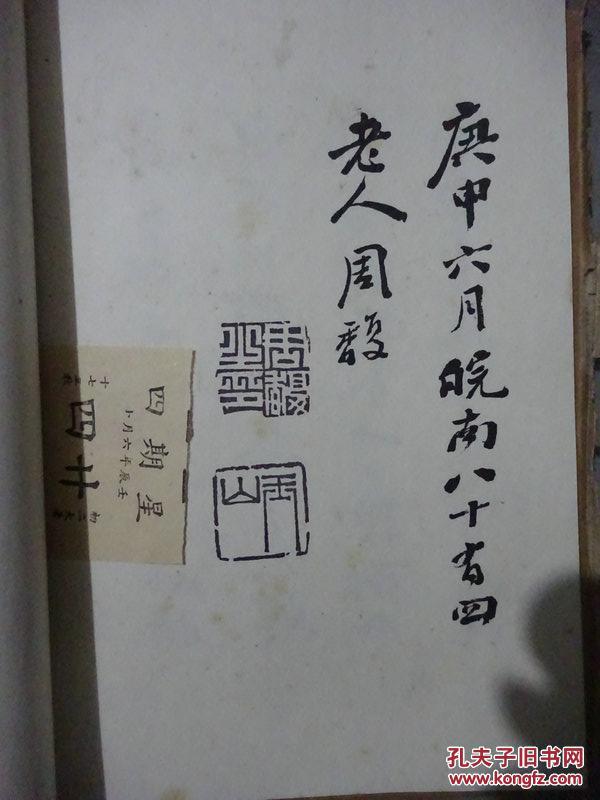 庚申六月皖南八十有四
老人周馥
周馥之印
玉山
星期四
壬辰年六月小
廿四
孔夫子旧书网
www.kongfz.com